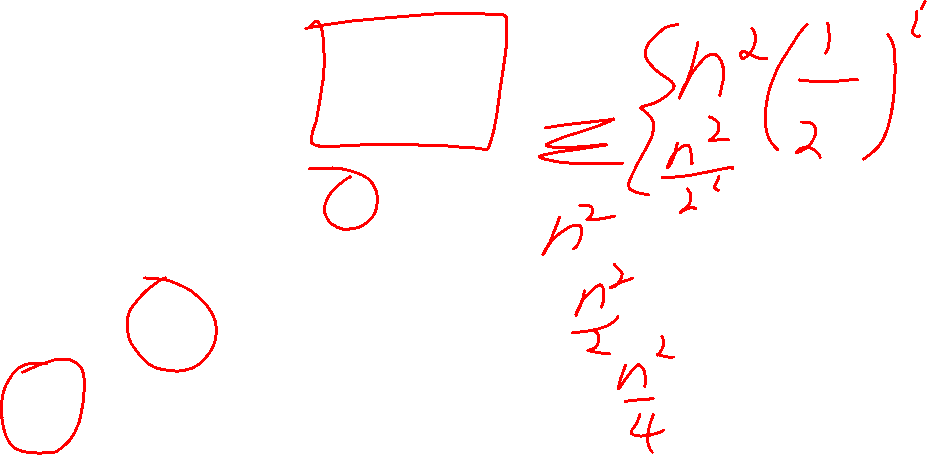 ≤ { n² (1/2)ⁱ
n²/2ⁱ
n²
n²/2
n²/4